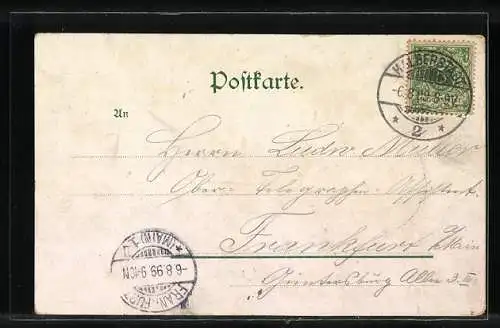 Postkarte.
HALBERSTADT
-6.8.99.5-6V.
* 2 *
An
Herrn Ludw Müller
Ober-Telegraphen-Assistent
Frankfurt a/Main
Güntersburg Allee 3 III
FRANKFURT
(MAIN) 1
-6 8 99